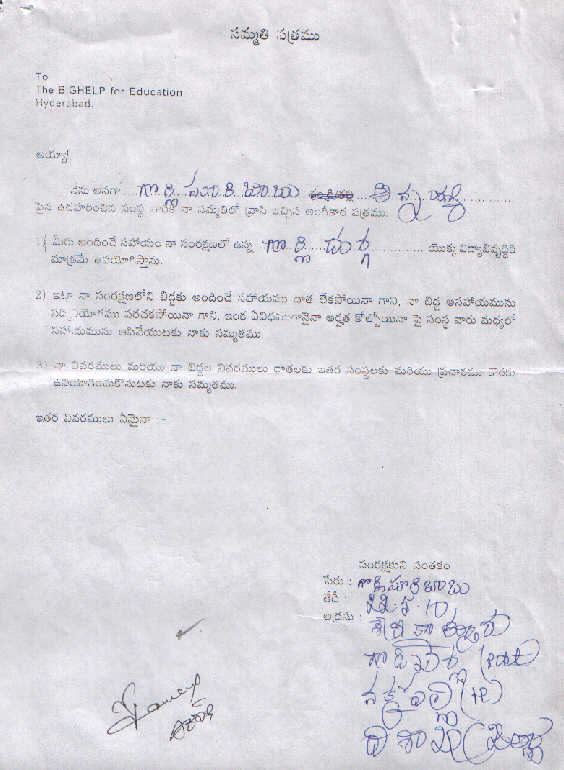 సమ్మతి పత్రము
To
The BIGHELP for Education
Hyderabad.
అయ్యా!
నేను అనగా గొర్లి సూరి బాబు
పైన ఉదహరించిన సంస్థ వారికి నా సమ్మతితో వ్రాసి ఇచ్చిన అంగీకార పత్రము.
1) మీరు అందించే సహాయం నా సంరక్షణలో ఉన్న గొర్లి దుర్గ యొక్క విద్యాభివృద్ధికి
మాత్రమే ఉపయోగిస్తాను.
2) ఇటా నా సంరక్షణలోని బిడ్డకు అందించే సహాయము దాత లేకపోయినా గాని, నా బిడ్డ ఆసహాయమును
సద్వినియోగము పరచకపోయినా గాని, ఇంకా ఏవిధంగానైనా అర్హత కోల్పోయినా పై సంస్థ వారు మధ్యలో
సహాయమును ఆపివేయుటకు నాకు సమ్మతము
3) నా వివరములు మరియు నా బిడ్డల వివరములు దాతలకు ఇతర సంస్థలకు మరియు ప్రచారము కొరకు
ఉపయోగించుకొనుటకు నాకు సమ్మతము.
ఇతర వివరములు ఏమైనా :-
సంరక్షకుని సంతకం
పేరు : గొర్లి సూరి బాబు
తేదీ :
అడ్రసు :
(post)
నక్కపల్లి